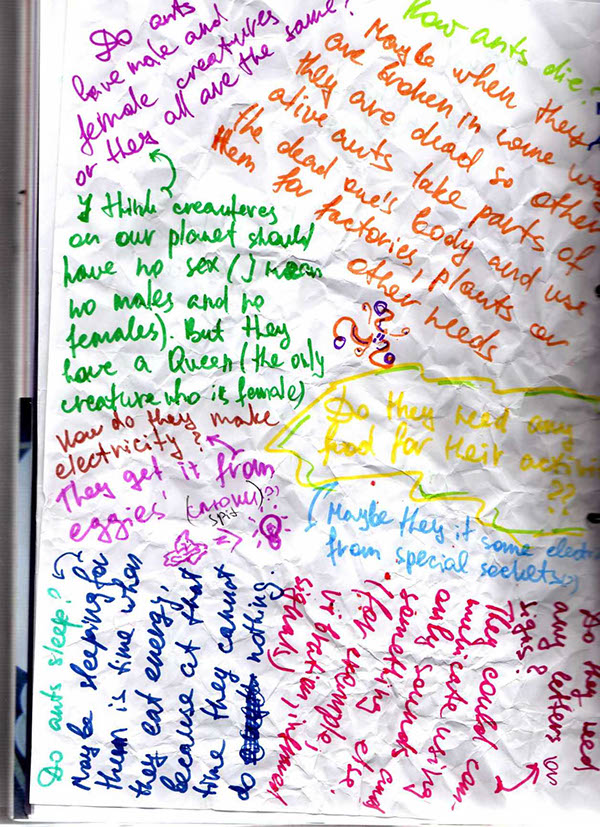 Do ants
have male and
female creatures
or they all are the same?
I think creauteres
on our planet should
have no sex (I mean
no males and no
females). But they
have a Queen (the only
creature who is female)
How ants die?
Maybe when they
are broken in some way
they are dead so other
alive ants take parts of
the dead one's body and use
them for factories, plants or
other needs
How do they make
electricity?
They get it from
eggies'
spit
??
Do they need any
food for their activi
??
Maybe they it some electri
from special sockets
Do ants sleep?
Maybe sleeping for
them is time when
they eat energy,
because at that
time they cannot
do nothing.
Do they need
any letters or
signs?
They could com-
municate using
only sounds and
something else.
(for example,
vibration, infrared
signals)